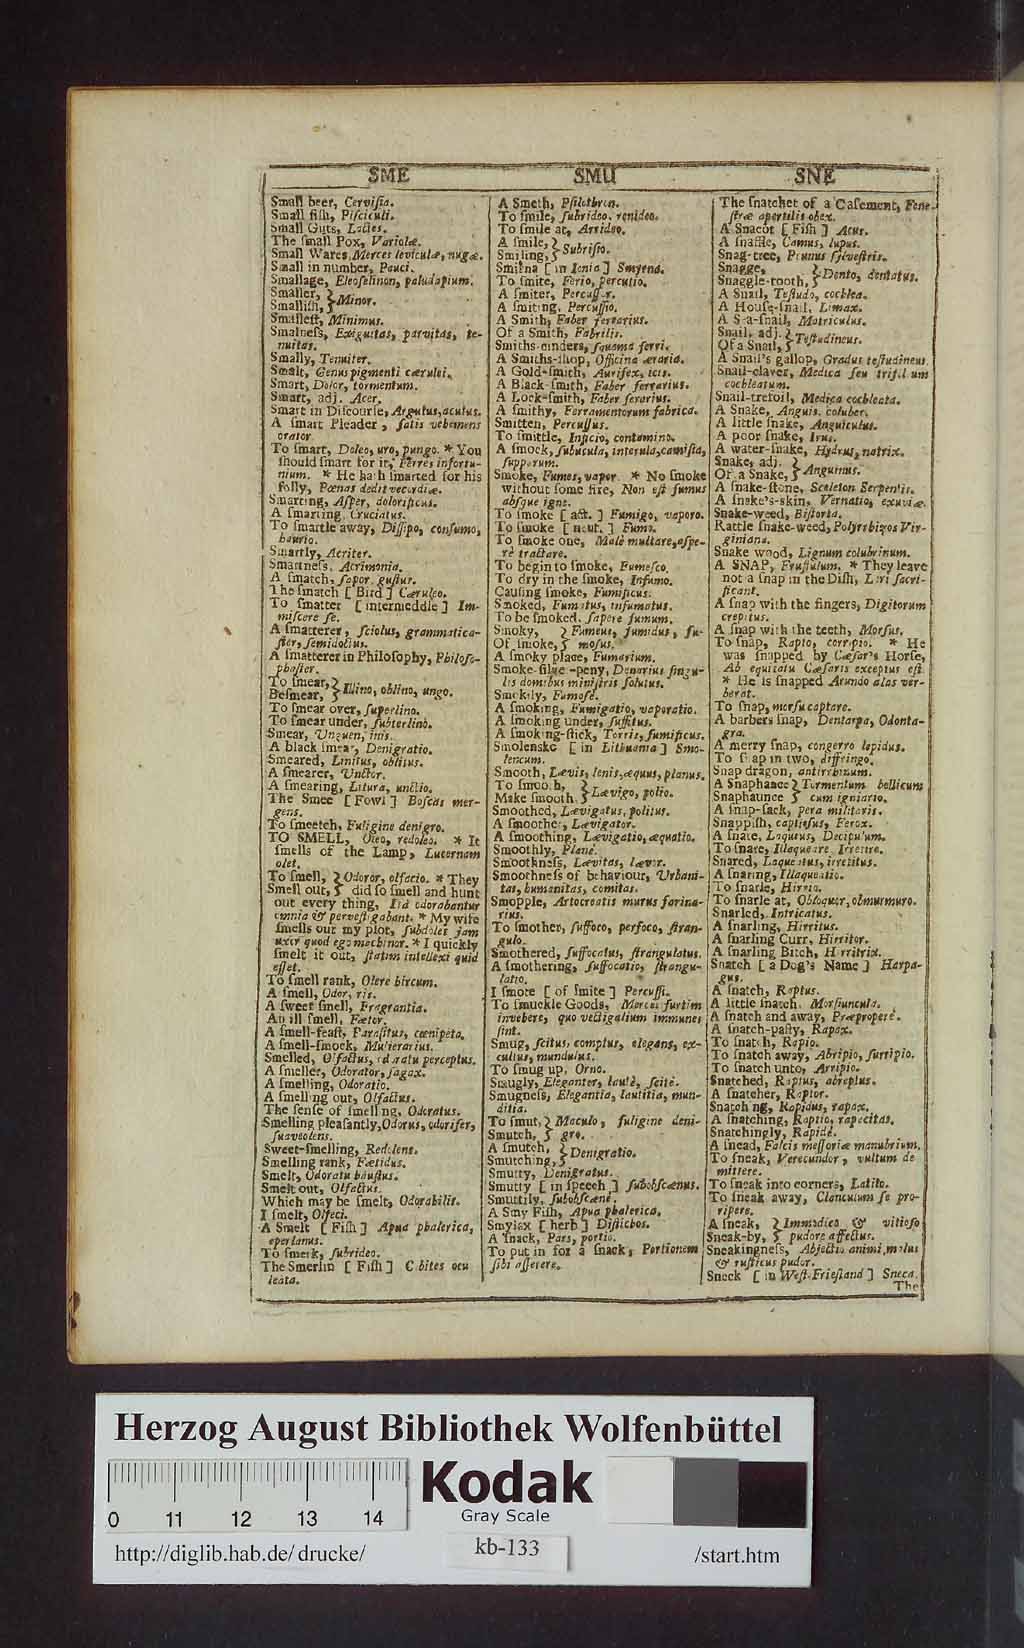 SME
SMU
SNE
Small beer, Cerviſia.
Small fiſh, Piſciculi.
Small Guts, Lactes.
The ſmall Pox, Variolæ.
Small Wares, Merces leviculæ, nugæ.
Small in number, Pauci.
Smallage, Eleoſelinon, paludapium.
Smaller, } Minor.
Smalliſh, }
Smalleſt, Minimus.
Smalneſs, Exiguitas, parvitas, te-
nuitas.
Smally, Tenuiter.
Smalt, Genus pigmenti cærulei.
Smart, Dolor, tormentum.
Smart, adj. Acer.
Smart in Diſcourſe, Argutus, acutus.
A ſmart Pleader, ſatis vehemens
orator.
To ſmart, Doleo, uro, pungo. * You
ſhould ſmart for it, Ferres infortu-
nium. * He hath ſmarted for his
Folly, Pœnas dedit vecordiæ.
Smarting, Aſper, dolorificus.
A ſmarting, Cruciatus.
To ſmartle away, Diſſipo, conſumo,
haurio.
Smartly, Acriter.
Smartneſs, Acrimonia.
A ſmatch, ſapor, guſtus.
The ſmatch [Bird] Cæruleo.
To ſmatter [intermeddle] Im-
miſcere ſe.
A ſmatterer, ſciolus, grammatica-
ſter, ſemidoctus.
A ſmatterer in Philoſophy, Philoſo-
phaſter.
To ſmear, } Illino, oblino, ungo.
Beſmear, }
To ſmear over, ſuperlino.
To ſmear under, ſubterlino.
Smear, Unguen, inis.
A black ſmear, Denigratio.
Smeared, Linitus, oblitus.
A ſmearer, Unctor.
A ſmearing, Litura, unctio.
The Smee [Fowl] Boſcas mer-
gens.
To ſmeetch, Fuligine denigro.
TO SMELL, Oleo, redoleo. * It
ſmells of the Lamp, Lucernam
olet.
To ſmell, } Odoror, olfacio. * They
Smell out, } did ſo ſmell and hunt
out every thing, Ita odorabantur
omnia & perveſtigabant. * My wife
ſmells out my plot, ſubdolet jam
uxor quod ego machinor. * I quickly
ſmelt it out, ſtatim intellexi quid
eſſet.
To ſmell rank, Olere hircum.
A ſmell, Odor, ris.
A ſweet ſmell, Fragrantia.
An ill ſmell, Fœtor.
A ſmell-feaſt, Paraſitus, cœnipeta.
A ſmell-ſmock, Mulierarius.
Smelled, Olfactus, odoratu perceptus.
A ſmeller, Odorator, ſagax.
A ſmelling, Odoratio.
A ſmelling out, Olfactus.
The ſenſe of ſmelling, Odoratus.
Smelling pleaſantly, Odorus, odorifer,
ſuaveolens.
Sweet-ſmelling, Redolens.
Smelling rank, Fœtidus.
Smelt, Odoratu hauſtus.
Smelt out, Olfactus.
Which may be ſmelt, Odorabilis.
I ſmelt, Olfeci.
A Smelt [Fiſh] Apua phalerica,
eperlanus.
To ſmerk, ſubrideo.
The Smerlin [Fiſh] Cobites acu
leata.
A Smeth, Pſilothron.
To ſmile, ſubrideo, renideo.
To ſmile at, Arrideo.
A ſmile, } Subriſio.
Smiling, }
Smirna [in Ionia] Smyrna.
To ſmite, Ferio, percutio.
A ſmiter, Percuſſor.
A ſmiting, Percuſſio.
A Smith, Faber ferrarius.
Of a Smith, Fabrilis.
Smiths-cinders, ſquama ferri.
A Smiths-ſhop, Officina æraria.
A Gold-ſmith, Aurifex, icis.
A Black-ſmith, Faber ferrarius.
A Lock-ſmith, Faber ſerarius.
A ſmithy, Ferramentorum fabrica.
Smitten, Percuſſus.
To ſmittle, Inficio, contamino.
A ſmock, ſubucula, interula, camiſia,
ſupparum.
Smoke, Fumus, vapor. * No ſmoke
without ſome fire, Non eſt fumus
abſque igne.
To ſmoke [act.] Fumigo, vaporo.
To ſmoke [neut.] Fumo.
To ſmoke one, Malè multare, aſpe-
rè tractare.
To begin to ſmoke, Fumeſco.
To dry in the ſmoke, Infumo.
Cauſing ſmoke, Fumificus.
Smoked, Fumatus, infumatus.
To be ſmoked, ſapere fumum.
Smoky, } Fumeus, fumidus, fu-
Of ſmoke, } moſus.
A ſmoky place, Fumarium.
Smoke-ſilver-peny, Denarius ſingu-
lis domibus miniſtris ſolutus.
Smokily, Fumoſè.
A ſmoking, Fumigatio, vaporatio.
A ſmoking under, ſuffitus.
A ſmoking-ſtick, Torris, fumificus.
Smolensko [in Lithuania] Smo-
lencum.
Smooth, Lævis, lenis, æquus, planus.
To ſmooth, } Lævigo, polio.
Make ſmooth, }
Smoothed, Lævigatus, politus.
A ſmoother, Lævigator.
A ſmoothing, Lævigatio, æquatio.
Smoothly, Planè.
Smoothneſs, Lævitas, lævor.
Smoothneſs of behaviour, Urbani-
tas, humanitas, comitas.
Smopple, Artocreatis murus farina-
rius.
To ſmother, ſuffoco, perfoco, ſtran-
gulo.
Smothered, ſuffocatus, ſtrangulatus.
A ſmothering, ſuffocatio, ſtrangu-
latio.
I ſmote [of ſmite] Percuſſi.
To ſmuckle Goods, Merces furtim
invehere, quo vectigalium immunes
ſint.
Smug, ſcitus, comptus, elegans, ex-
cultus, mundulus.
To ſmug up, Orno.
Smugly, Eleganter, lautè, ſcitè.
Smugneſs, Elegantia, lautitia, mun-
ditia.
To ſmut, } Maculo, fuligine deni-
Smutch, } gro.
A ſmutch, } Denigratio.
Smutching, }
Smutty, Denigratus.
Smutty [in ſpeech] ſubobſcænus.
Smuttily, ſubobſcænè.
A Smy Fiſh, Apua phalerica.
Smylax [herb] Diſtichos.
A ſnack, Pars, portio.
To put in for a ſnack, Portionem
ſibi aſſerere.
The ſnatchet of a Caſement, Fene-
ſtræ apertilis obex.
A Snacot [Fiſh] Acus.
A ſnaffle, Camus, lupus.
Snag-tree, Prunus ſylveſtris.
Snagge, } Dento, dentatus.
Snaggle-tooth, }
A Snail, Teſtudo, cochlea.
A Houſe-ſnail, Limax.
A Sea-ſnail, Matriculus.
Snail, adj. } Teſtudineus.
Of a Snail, }
A Snail's gallop, Gradus teſtudineus.
Snail-claver, Medica ſeu trifolium
cochleatum.
Snail-trefoil, Medica cochleata.
A Snake, Anguis, coluber.
A little ſnake, Anguiculus.
A poor ſnake, Irus.
A water-ſnake, Hydrus, natrix.
Snake, adj. } Anguinus.
Of a Snake, }
A ſnake-ſtone, Sceleton Serpentis.
A ſnake's-skin, Vernatio, exuviæ.
Snake-weed, Biſtorta.
Rattle ſnake-weed, Polyrrhizos Vir-
giniana.
Snake wood, Lignum colubrinum.
A SNAP, Fruſtulum. * They leave
not a ſnap in the Diſh, Lari ſacri-
ficant.
A ſnap with the fingers, Digitorum
crepitus.
A ſnap with the teeth, Morſus.
To ſnap, Rapto, corripio. * He
was ſnapped by Cæſar's Horſe,
Ab equitatu Cæſaris exceptus eſt
* He is ſnapped Arundo alas ver-
berat.
To ſnap, morſu captare.
A barbers ſnap, Dentarpa, Odonta-
gra.
A merry ſnap, congerro lepidus.
To ſnap in two, diffringo.
Snap dragon, antirrhinum.
A Snaphance } Tormentum bellicum
Snaphaunce } cum igniario.
A ſnap-ſack, pera militaris.
Snappiſh, captioſus, Ferox.
A ſnare, Laqueus, Decipulum.
To ſnare, Illaqueare, Irretire.
Snared, Laqueatus, irretitus.
A ſnaring, Illaqueatio.
To ſnarle, Hirrio.
To ſnarle at, Obloquor, obmurmuro.
Snarled, Intricatus.
A ſnarling, Hirritus.
A ſnarling Curr, Hirritor.
A ſnarling Bitch, Hirritrix.
Snatch [a Dog's Name] Harpa-
gus.
A ſnatch, Raptus.
A little ſnatch, Morſiuncula.
A ſnatch and away, Præproperè.
A ſnatch-paſty, Rapax.
To ſnatch, Rapio.
To ſnatch away, Abripio, ſurripio.
To ſnatch unto, Arripio.
Snatched, Raptus, abreptus.
A ſnatcher, Raptor.
Snatching, Rapidus, rapax.
A ſnatching, Raptio, rapacitas.
Snatchingly, Rapidè.
A ſnead, Falcis meſſoriæ manubrium.
To ſneak, Verecundor, vultum de
mittere.
To ſneak into corners, Latito.
To ſneak away, Clanculum ſe pro-
ripere.
A ſneak, } Immodica & vitioſo
Sneak-by, } pudore affectus.
Sneakingneſs, Abjectio animi, malus
& ruſticus pudor.
Sneck [in Weſt-Frieſland] Sneca.
The
Herzog August Bibliothek Wolfenbüttel
0 11 12 13 14
Kodak
Gray Scale
http://diglib.hab.de/drucke/
kb-133
/start.htm